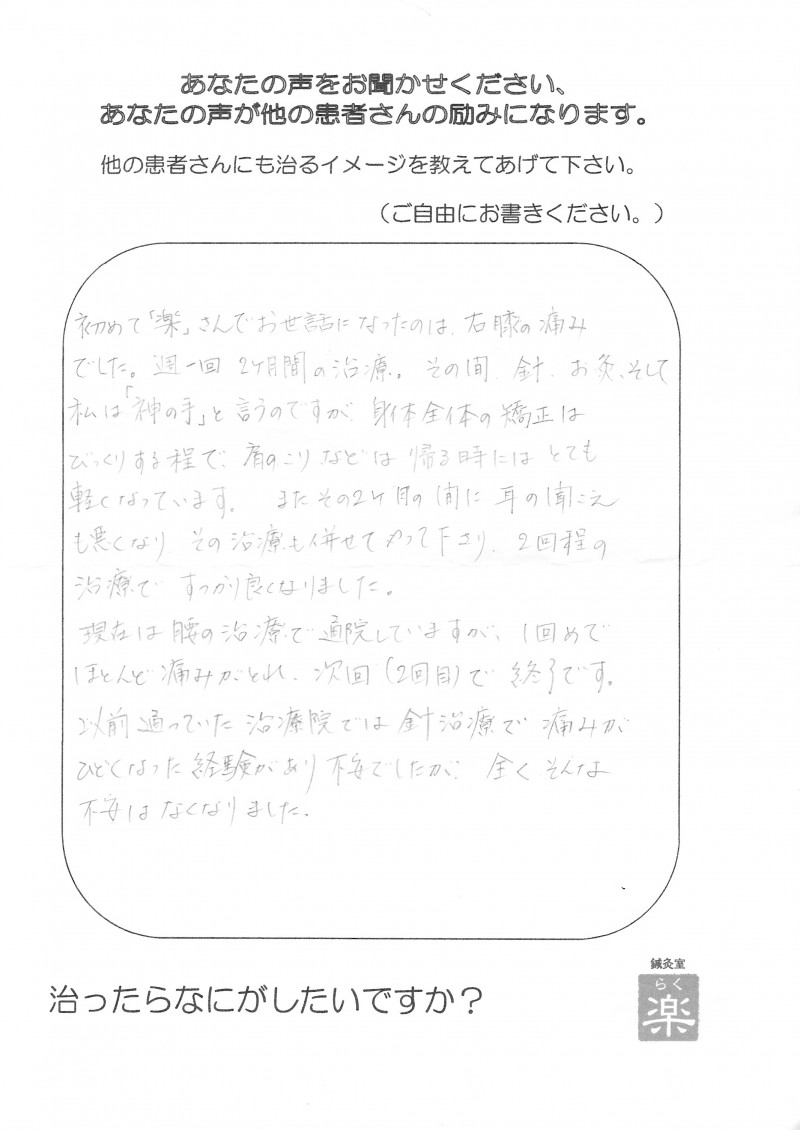 あなたの声をお聞かせください、
あなたの声が他の患者さんの励みになります。
他の患者さんにも治るイメージを教えてあげて下さい。
（ご自由にお書きください。）
初めて「楽」さんでお世話になったのは、右膝の痛み
でした。週一回 2ヶ月間の治療。その間、針、お灸、そして
私は「神の手」と言うのですが、身体全体の矯正は
びっくりする程で、肩のこりなどは帰る時にはとても
軽くなっています。またその2ヶ月の間に耳の聞こえ
も悪くなり、その治療も併せてやって下さり、2回程の
治療ですっかり良くなりました。
現在は腰の治療で通院していますが、1回めで
ほとんど痛みがとれ、次回（2回目）で終了です。
以前通っていた治療院では針治療で痛みが
ひどくなった経験があり不安でしたが、全くそんな
不安はなくなりました。
鍼灸室
らく
楽
治ったらなにがしたいですか？